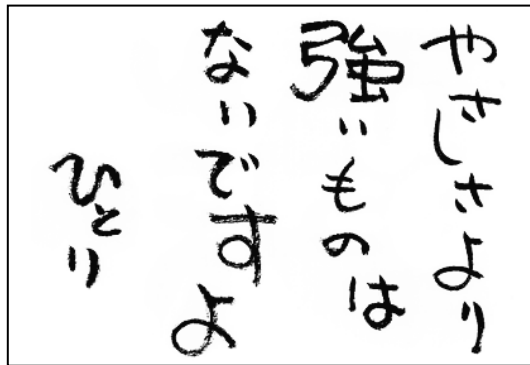 やさしさより
強いものは
ないですよ
ひとり